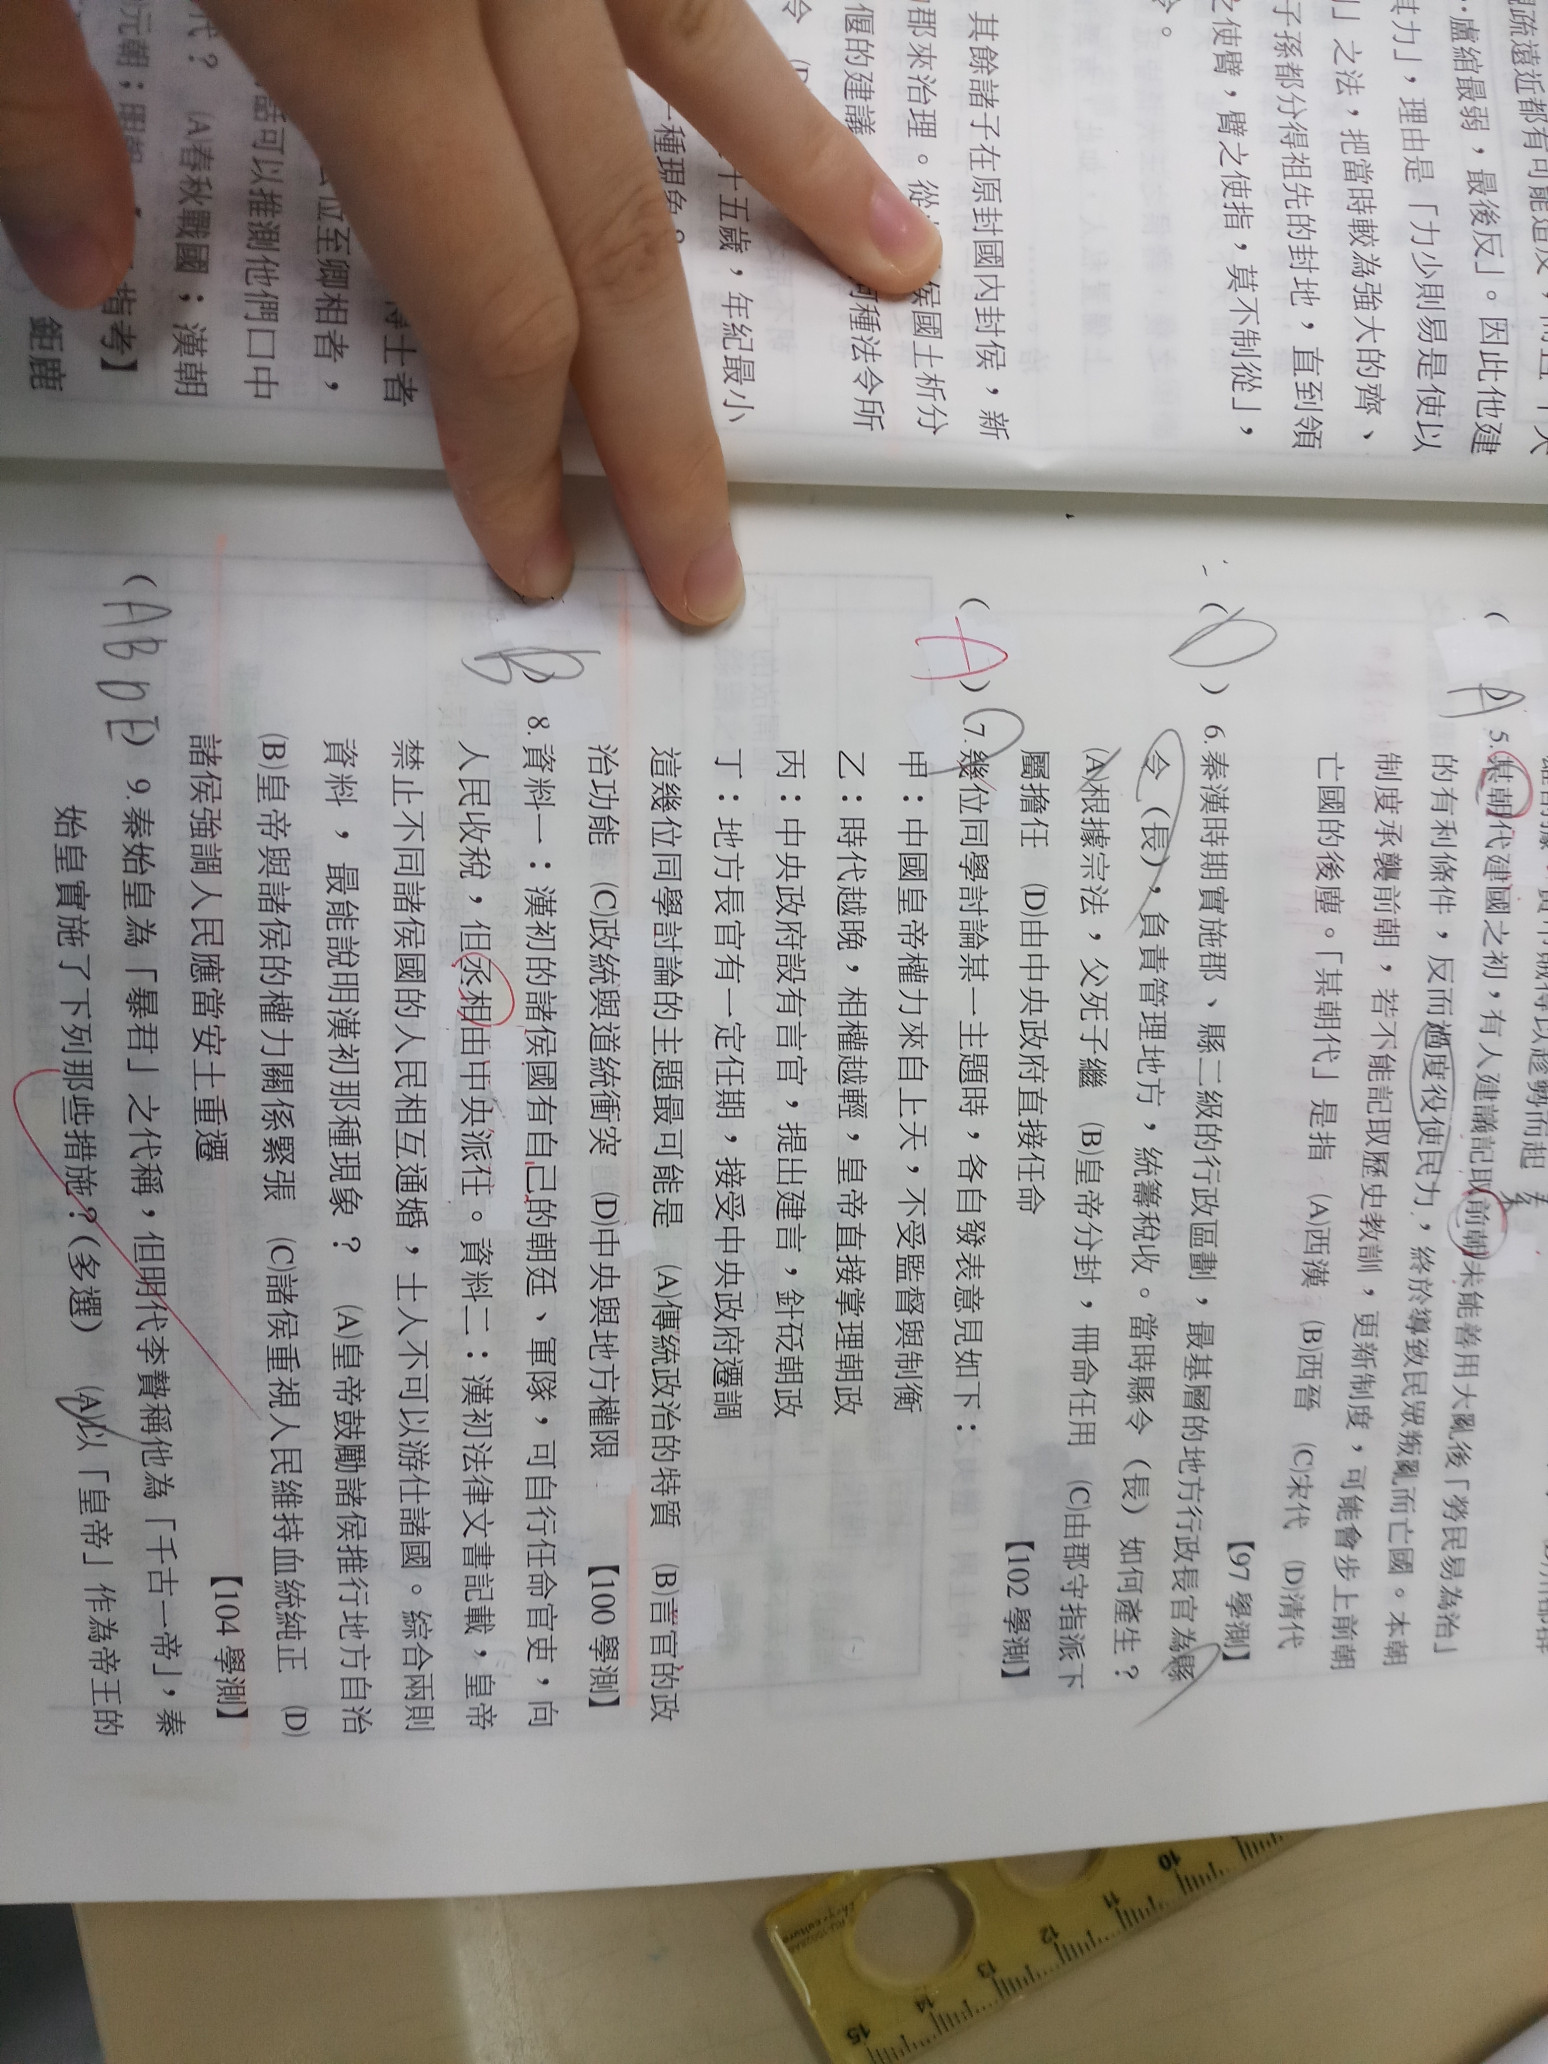 觀疏遠近都有可能造反，
盧綰最弱，最後反」。因此他建
其力」，理由是「力少則易是使以
」之法，把當時較為強大的齊、
子孫都分得祖先的封地，直到領
之使臂，臂之使指，莫不制從」，
令。
其餘諸子在原封國內封侯，新
郡來治理。從
侯國土析分
偃的建議
何種法令所
令
十五歲，年紀最小
一種現象？
博士者
位至卿相者，
話可以推測他們口中
代？ (A)春秋戰國；漢朝
元朝；明
指考】
鉅鹿
( A ) 5.某朝代建國之初，有人建議記取前朝未能善用大亂後「勞民易為治」
的有利條件，反而過度役使民力，終於導致民眾叛亂而亡國。本朝
制度承襲前朝，若不能記取歷史教訓，更新制度，可能會步上前朝
亡國的後塵。「某朝代」是指 (A)西漢 (B)西晉 (C)宋代 (D)清代
【97 學測】
( D ) 6.秦漢時期實施郡、縣二級的行政區劃，最基層的地方行政長官為縣
令（長），負責管理地方，統籌稅收。當時縣令（長）如何產生？
(A)根據宗法，父死子繼 (B)皇帝分封，冊命任用 (C)由郡守指派下
屬擔任 (D)由中央政府直接任命
【102 學測】
( A ) 7.幾位同學討論某一主題時，各自發表意見如下：
甲：中國皇帝權力來自上天，不受監督與制衡
乙：時代越晚，相權越輕，皇帝直接掌理朝政
丙：中央政府設有言官，提出建言，針砭朝政
丁：地方長官有一定任期，接受中央政府遷調
這幾位同學討論的主題最可能是 (A)傳統政治的特質 (B)言官的政
治功能 (C)政統與道統衝突 (D)中央與地方權限
【100 學測】
B ) 8.資料一：漢初的諸侯國有自己的朝廷、軍隊，可自行任命官吏，向
人民收稅，但丞相由中央派任。資料二：漢初法律文書記載，皇帝
禁止不同諸侯國的人民相互通婚，士人不可以游仕諸國。綜合兩則
資料，最能說明漢初那種現象？ (A)皇帝鼓勵諸侯推行地方自治
(B)皇帝與諸侯的權力關係緊張 (C)諸侯重視人民維持血統純正 (D)
諸侯強調人民應當安土重遷
【104 學測】
( A B D E ) 9.秦始皇為「暴君」之代稱，但明代李贄稱他為「千古一帝」，秦
始皇實施了下列那些措施？(多選) (A)以「皇帝」作為帝王的
10
11
12
13
14
15